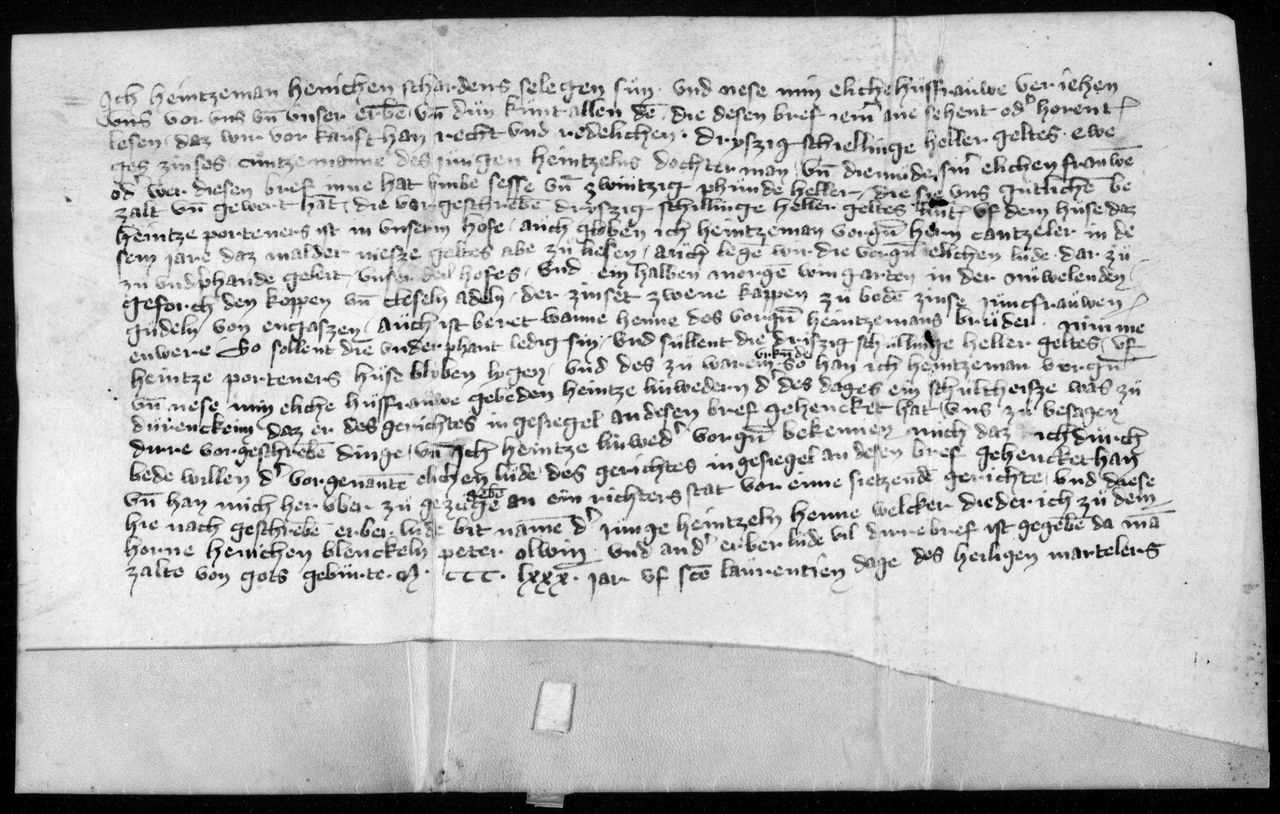 Ich heintzeman henichen schardens selegen sün · vnd nese min eliche hüssfrauwe veriehen
vns vor vns vn̄ vnser erbē vn̄ dün künt allen dē · die desen bref ane sehent od' horent
lesen / daz wir vor kauft han recht vnd redelichen · dryszig schillinge heller geltes · ewe
ges zinses des jüngen heintzelns dochter man / vn̄ elichen frauwē
od' wer diesen bref inne hat vmbe sesse vn̄ zwintzig phünde heller / die sie vns gütlichē be
zalt vn̄ gewert hāt / die vor geschrebē dryszig schillinge heller geltes vf dem hüse daz
heintze porteners ist in vnserm hofe / auch globen ich heintzeman vorgn̄ hern cantzeler in de
sem jare daz malder geltes abe zü lesen / auch legē wir die vorgn̄ elichen lüde · dar zü
zü vnd'phande vnser deil hofes / vnd ein halben morgē wingarten in der nüwelenden /
geforch den koppen vn̄ adeln / der zinset zwene kappen zü bedē zinse jüncfrauwen /
gudeln von engaszen / auch ist beret wanne henne des vorgn̄ heintzemans brüder · nimme
enwere / So sollent die vnder phant ledig sin / vnd süllent die driszig schillinge heller geltes / vf
heintze porteners hüse blyben lygen / vnd des zü warem vrkünde so han ich heintzeman vorgn̄
vn̄ nese min eliche hüssfrauwe gebeden heintze d' des dages ein schültheisze was zü
dürenckeim daz er des gerichtes in gesiegel an desen bref gehencket hat / vns zü besagen
dirre vorgeschrebē dinge / vn̄ Ich heintze vorgn̄ bekennen mich daz ich dürch
bede willen d' vorgenantē elichen lüde / des gerichtes in gesiegel an desen bref gehencket han
vn̄ han mich her vber zü gezüge gebē an ein richters stat vor eime sietzendē gerichte / vnd diese
hie nach geschrebē erber lüde bit namē d' jünge heintzeln henne welcker diederich zü dem
horne henichen blenckeln peter olwin · vnd and' erber lüde vil dirre bref ist gegebē da mā
zalte von gots gebürte · M · CCC · lxxx · jar vf scē laurentien dage des heiligen martelers